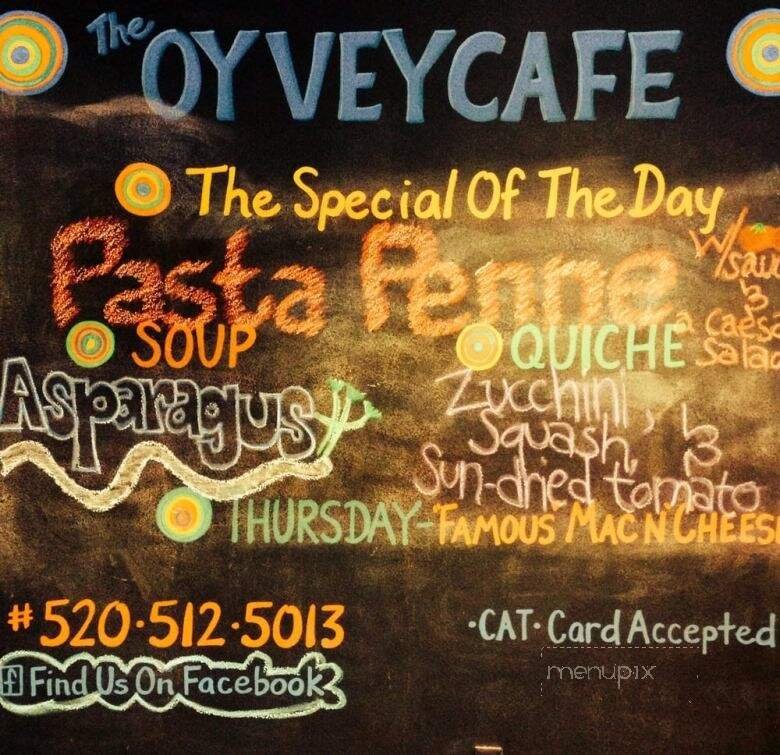 The OY VEY CAFE
The Special Of The Day
Pasta Penne
w/
&
a
SOUP
QUICHE
Asparagus
Zucchini,
Squash, &
Sun-dried tomato
THURSDAY-"FAMOUS" MAC N' CHEES
#520.512.5013
·CAT· Card Accepted
f Find Us On Facebook
menupix